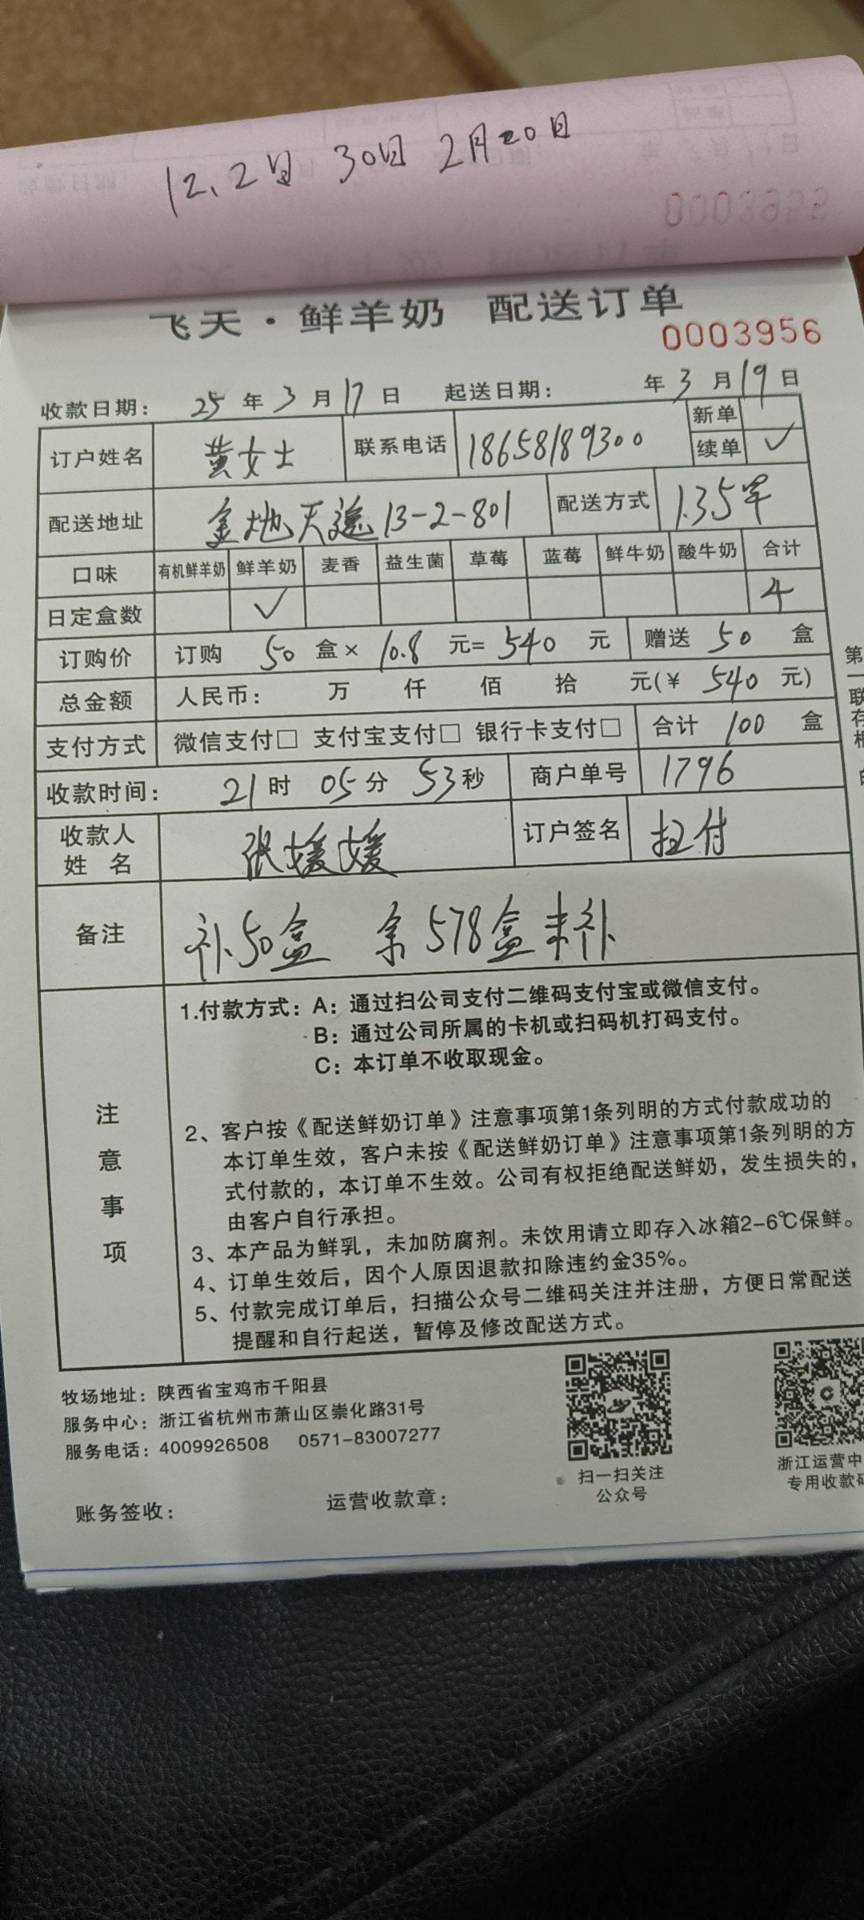 12.2日 30日 2月20日
飞天·鲜羊奶 配送订单
0003956
收款日期: 25 年 3 月 17 日 起送日期: 年 3 月 19 日
订户姓名 黄女士 联系电话 18658189300 新单
续单 ✓
配送地址 金地天逸13-2-801 配送方式 1.35早
口味 有机鲜羊奶 鲜羊奶 麦香 益生菌 草莓 蓝莓 鲜牛奶 酸牛奶 合计
日定盒数 ✓ 4
订购价 订购 50 盒× 10.8 元= 540 元 赠送 50 盒
总金额 人民币: 万 仟 佰 拾 元(¥ 540 元)
支付方式 微信支付□ 支付宝支付□ 银行卡支付□ 合计 100 盒
收款时间: 21 时 05 分 53 秒 商户单号 1796
收款人姓名 张媛媛 订户签名 扫付
备注 补50盒 余578盒未补
注意事项
1.付款方式: A: 通过扫公司支付二维码支付宝或微信支付。
B: 通过公司所属的卡机或扫码机打码支付。
C: 本订单不收取现金。
2、客户按《配送鲜奶订单》注意事项第1条列明的方式付款成功的
本订单生效，客户未按《配送鲜奶订单》注意事项第1条列明的方
式付款的，本订单不生效。公司有权拒绝配送鲜奶，发生损失的，
由客户自行承担。
3、本产品为鲜乳，未加防腐剂。未饮用请立即存入冰箱2-6℃保鲜。
4、订单生效后，因个人原因退款扣除违约金35%。
5、付款完成订单后，扫描公众号二维码关注并注册，方便日常配送
提醒和自行起送，暂停及修改配送方式。
第一联存根
牧场地址: 陕西省宝鸡市千阳县
服务中心: 浙江省杭州市萧山区崇化路31号
服务电话: 4009926508 0571-83007277
扫一扫关注
公众号
浙江运营中
专用收款码
账务签收: 运营收款章: